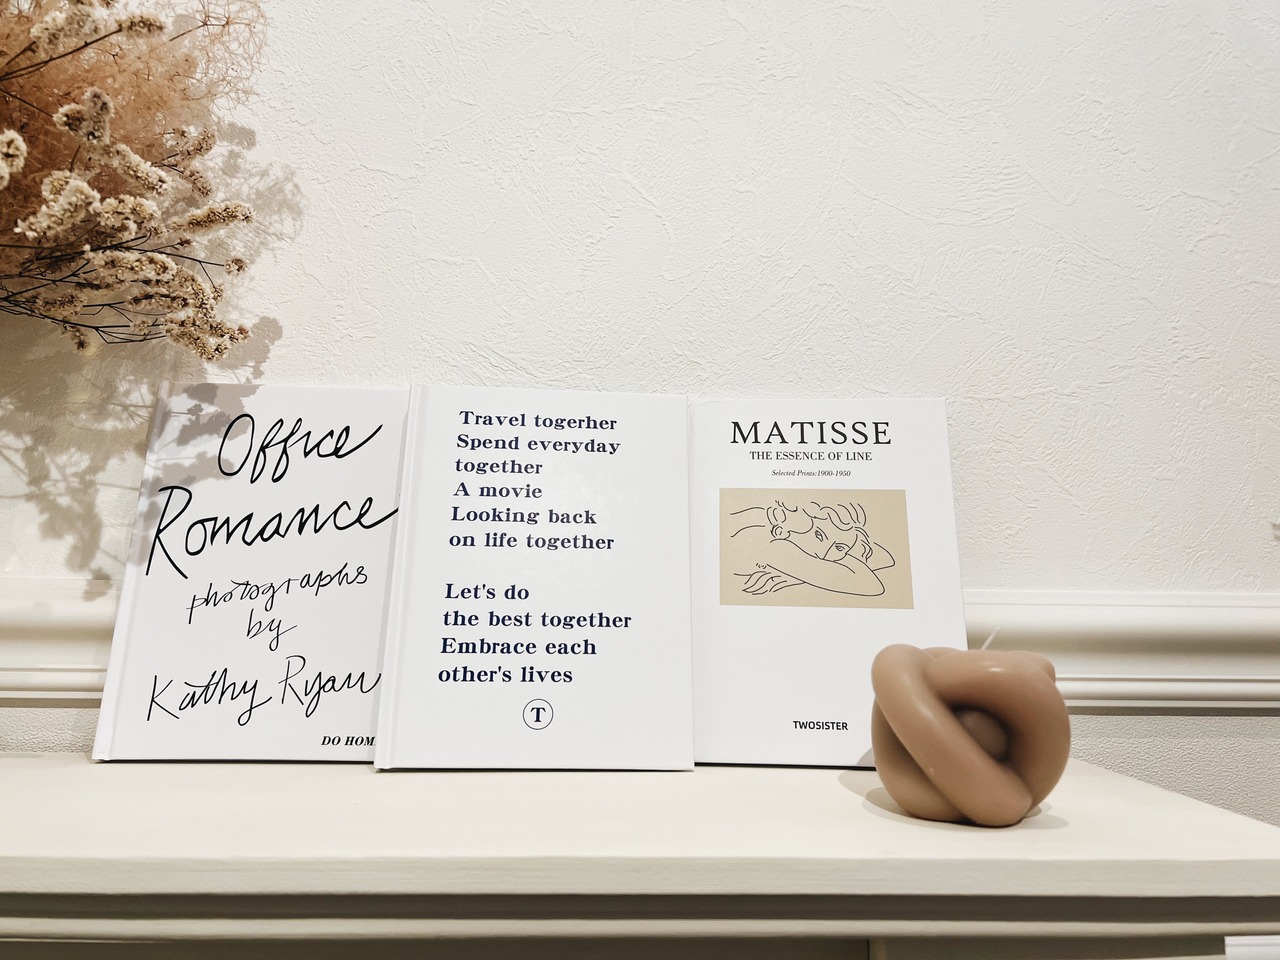 Office
Romance
photographs
by
Kathy Ryan
DO HOM
Travel togerher
Spend everyday
together
A movie
Looking back
on life together
Let's do
the best together
Embrace each
other's lives
T
MATISSE
THE ESSENCE OF LINE
Selected Prints:1900-1950
TWOSISTER